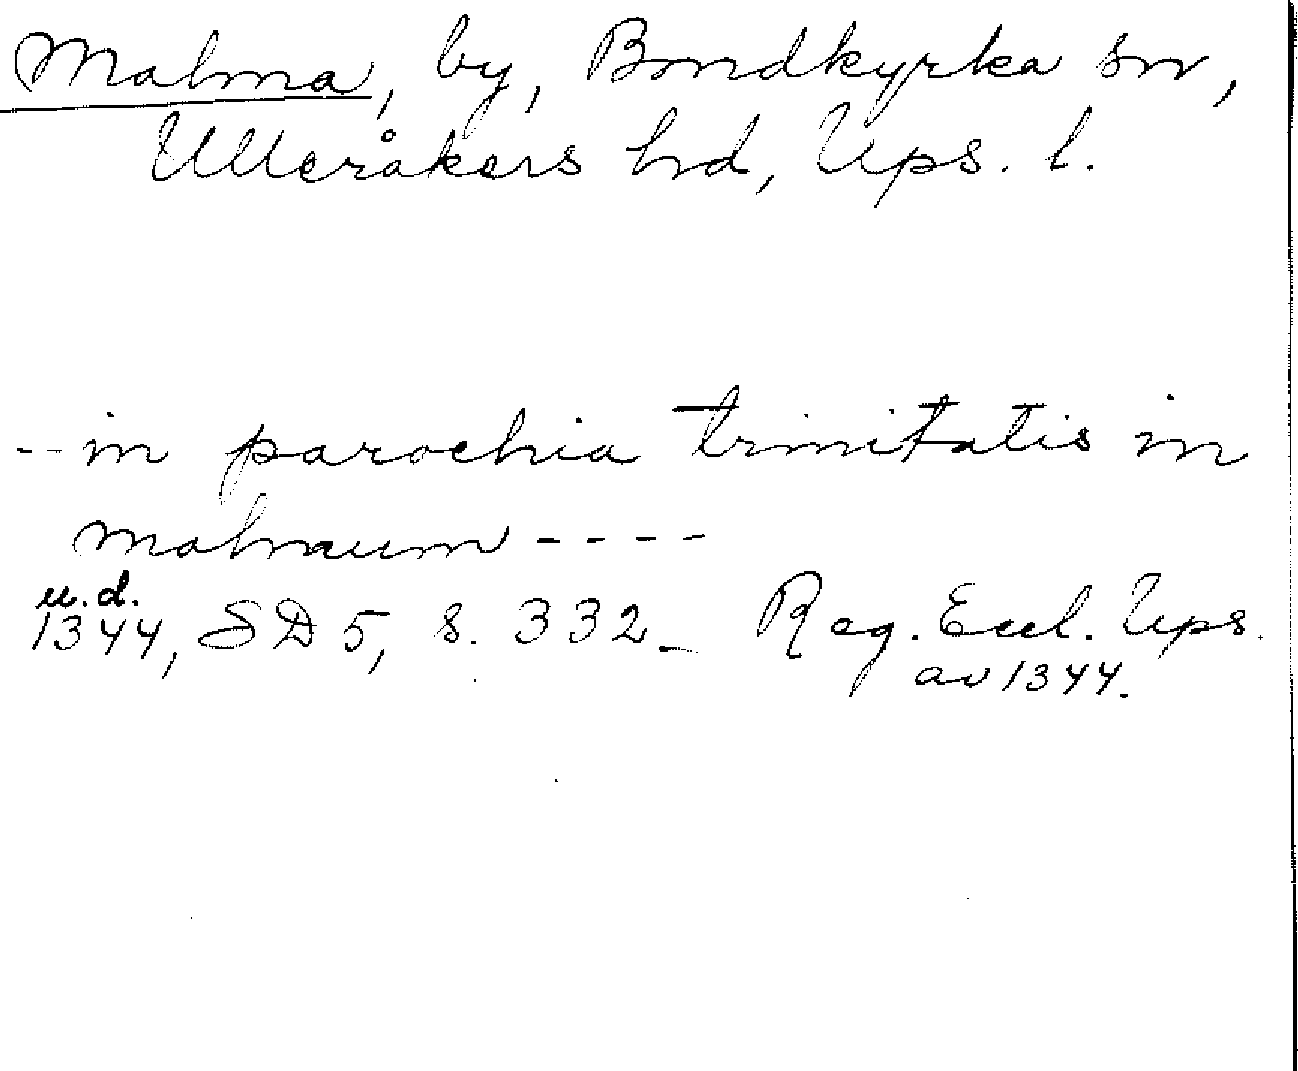 Malma, by, Bondkyrka sn,
Ulleråkers hd, Ups. l.
--in parochia trinitatis in
malmaum ----
u.d.
1344, SD 5, s. 332_ Reg. Eccl. Ups.
av 1344.